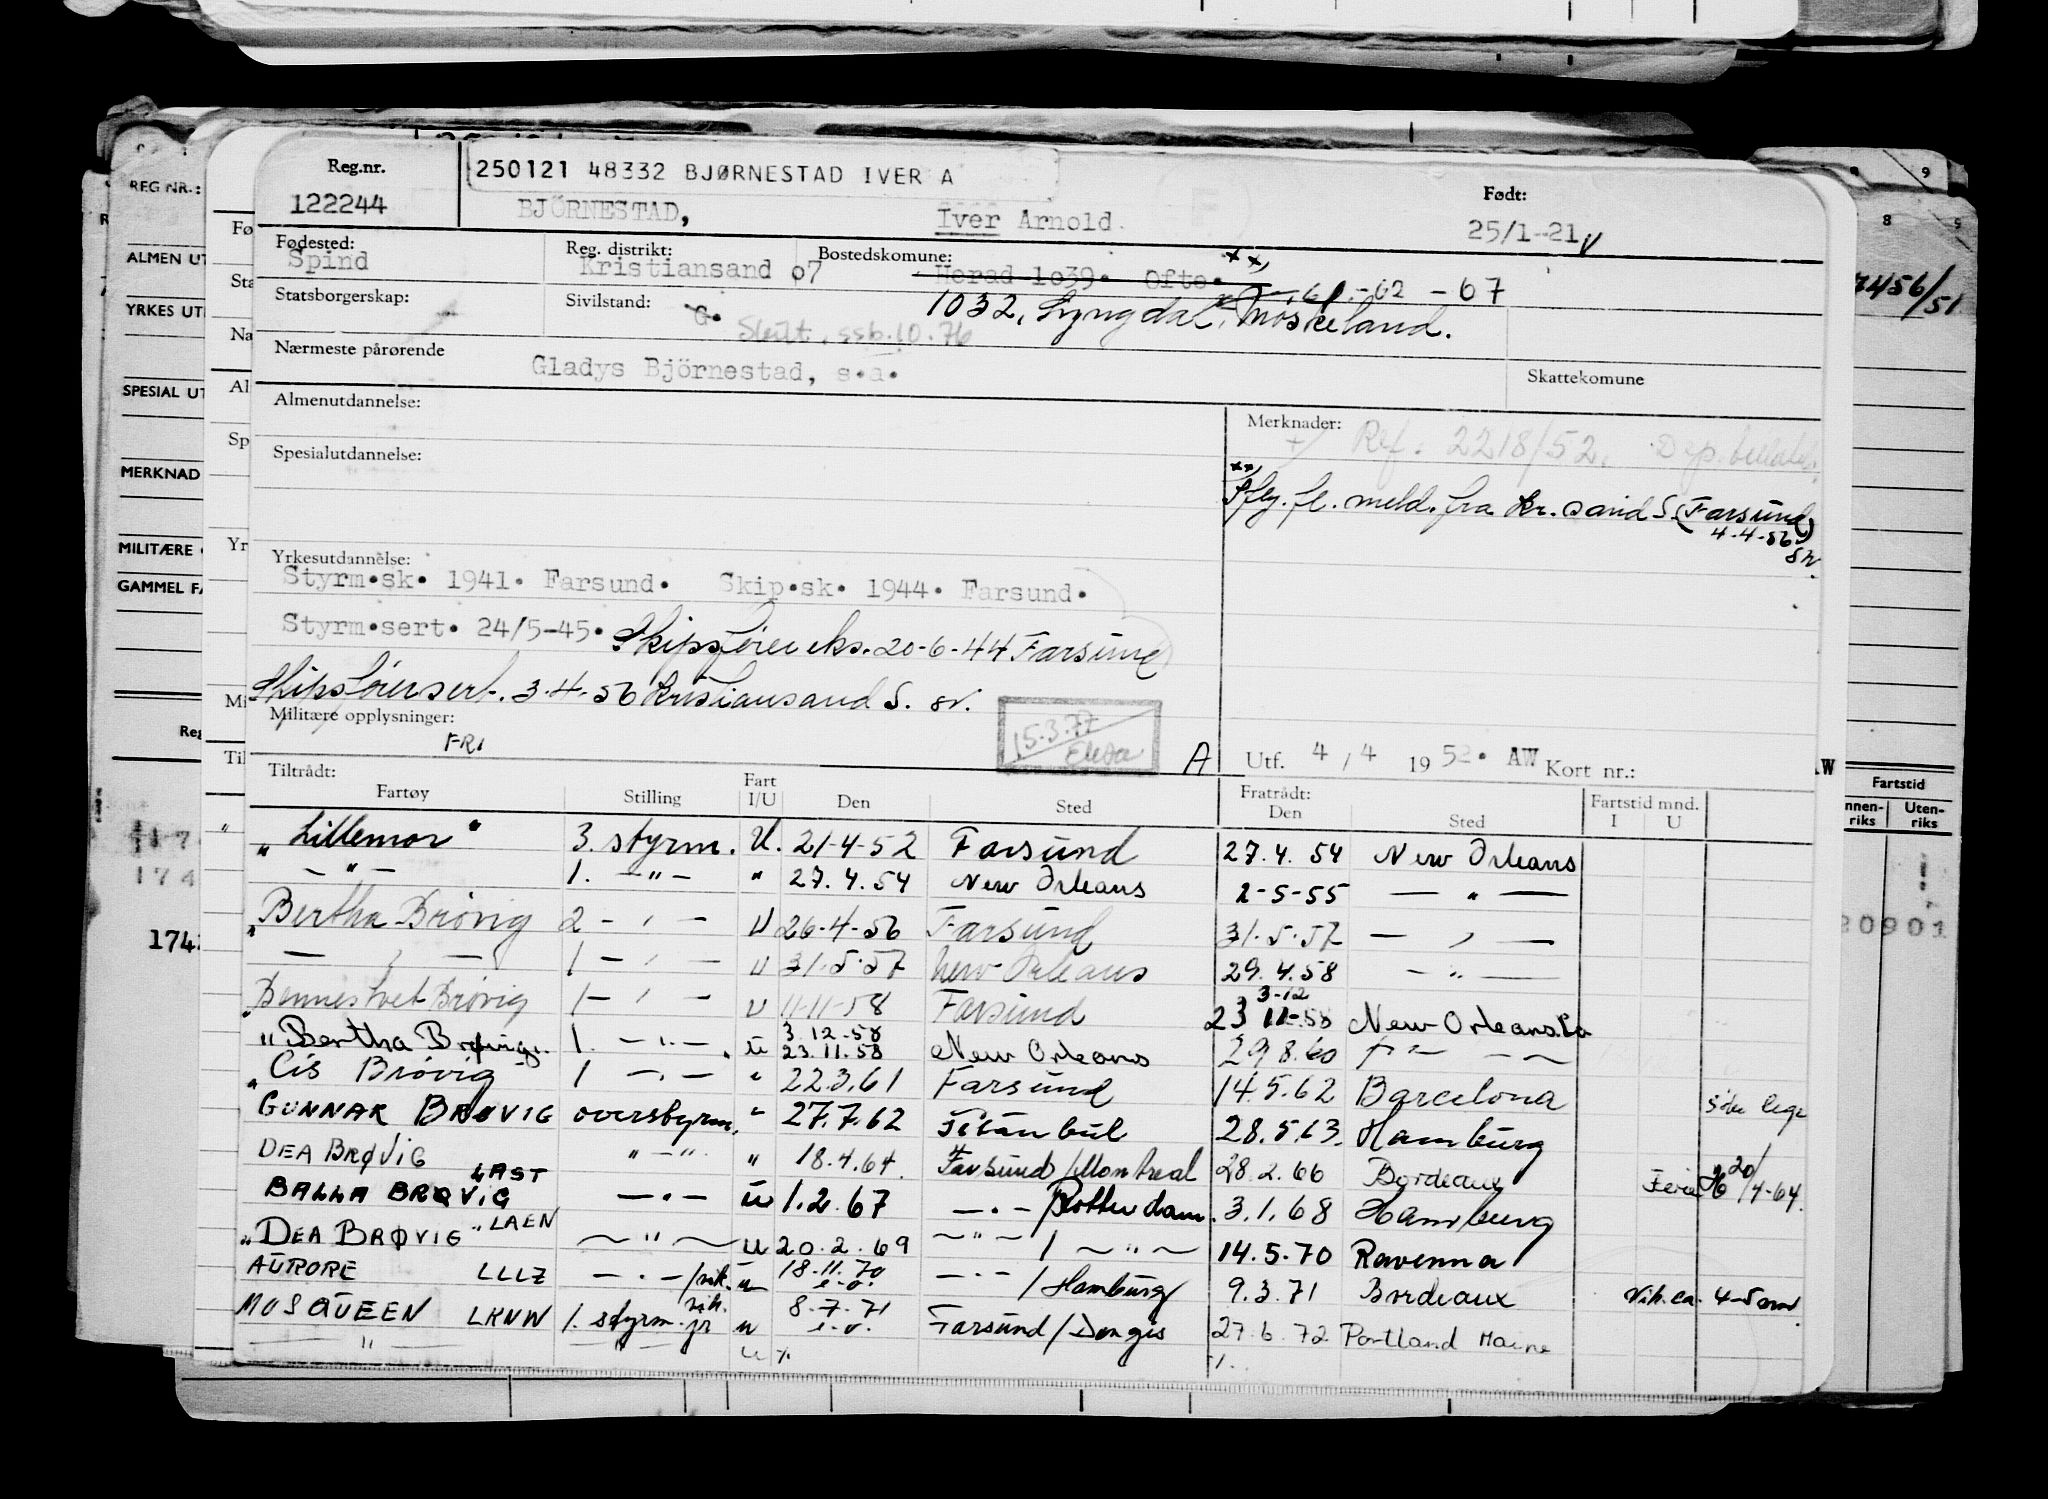 Reg.nr. 250121 48332 BJØRNESTAD IVER A Født:
122244 BJÖRNESTAD, Iver Arnold. 25/1-21
Fødested: Reg. distrikt: Bostedskomune:
Spind Kristiansand 07 Herad 1039. Ofte. - 67
Statsborgerskap: Sivilstand: G. 1032, Lyngdal, Moskeland.
Skilt, ssb.10.76
Nærmeste pårørende
Gladys Björnestad, s.a. Skattekomune
Almenutdannelse: Merknader:
Ref: 2218/52.
Spesialutdannelse:
meld. fra Kr.sand S. (Farsund)
4-4-56
sr.
Yrkesutdannelse:
Styrm.sk. 1941. Farsund. Skip.sk. 1944. Farsund.
Styrm.sert. 24/5-45. Skipsfører eks. 20-6-44 Farsund
Skipsførersert. 3-4-56 Kristiansand S. sr.
Militære opplysninger: 15.3.77
FRI A Utf. 4/4 1952. AW Kort nr.:
Tiltrådt: Fratrådt:
Fartøy Stilling Fart I/U Den Sted Den Sted Fartstid mnd. I U
"Lillemor" 3. styrm. U. 21-4-52 Farsund 27.4.54 New Orleans
— " — 1. — " — " 27.4.54 New Orleans 2-5-55 — " —
"Bertha Brøvig 2 — ' — U 26-4-56 Farsund 31.5.57 — , —
— , — 1 — ' — U 31.5.57 New Orleans 29.4.58 — " —
3-12
Bennestvet Brøvig 1 — ' — U 11-11-58 Farsund 23 11-58 New Orleans La
3.12-58
"Bertha Brøvig. 1. — " — . U 23.11.58 New Orleans 29.8.60
"Cis Brøvig 1 — . — " 22.3.61 Farsund 14.5.62 Barcelona
GUNNAR BRØVIG overstyrm. " 27.7.62 Istanbul 28.5.63. Hamburg
DEA BRØVIG " — " " 18.4.64. Farsund/Montreal 28.2.66 Bordeaux Ferie 20/4-64.
BALLA BRØVIG LAST — . — U 1.2.67 — . — /Rotterdam. 3.1.68 Hamburg
"DEA BRØVIG "LAEN — " — U 20.2.69 — " — / — " — 14.5.70 Ravenna
AURORE LLLZ — . — /vik. u 18-11.70 — . — / Hamburg 9.3.71 Bordeaux Vik. ca. 4-5 mnd
MOSQUEEN LKNW 1. styrm. jr vik. u 8-7-71 Farsund/ 27.6.72 Portland Maine
— " —
REG NR.:
ALMEN UT
YRKES UT
SPESIAL UT
MERKNAD
MILITÆRE
GAMMEL FA
Reg
174
Fø
Sta
Na
Al
Sp
Yr
Mi
Til
8 9
8
7456/51
Fartstid
nnen-riks Uten-riks
20901